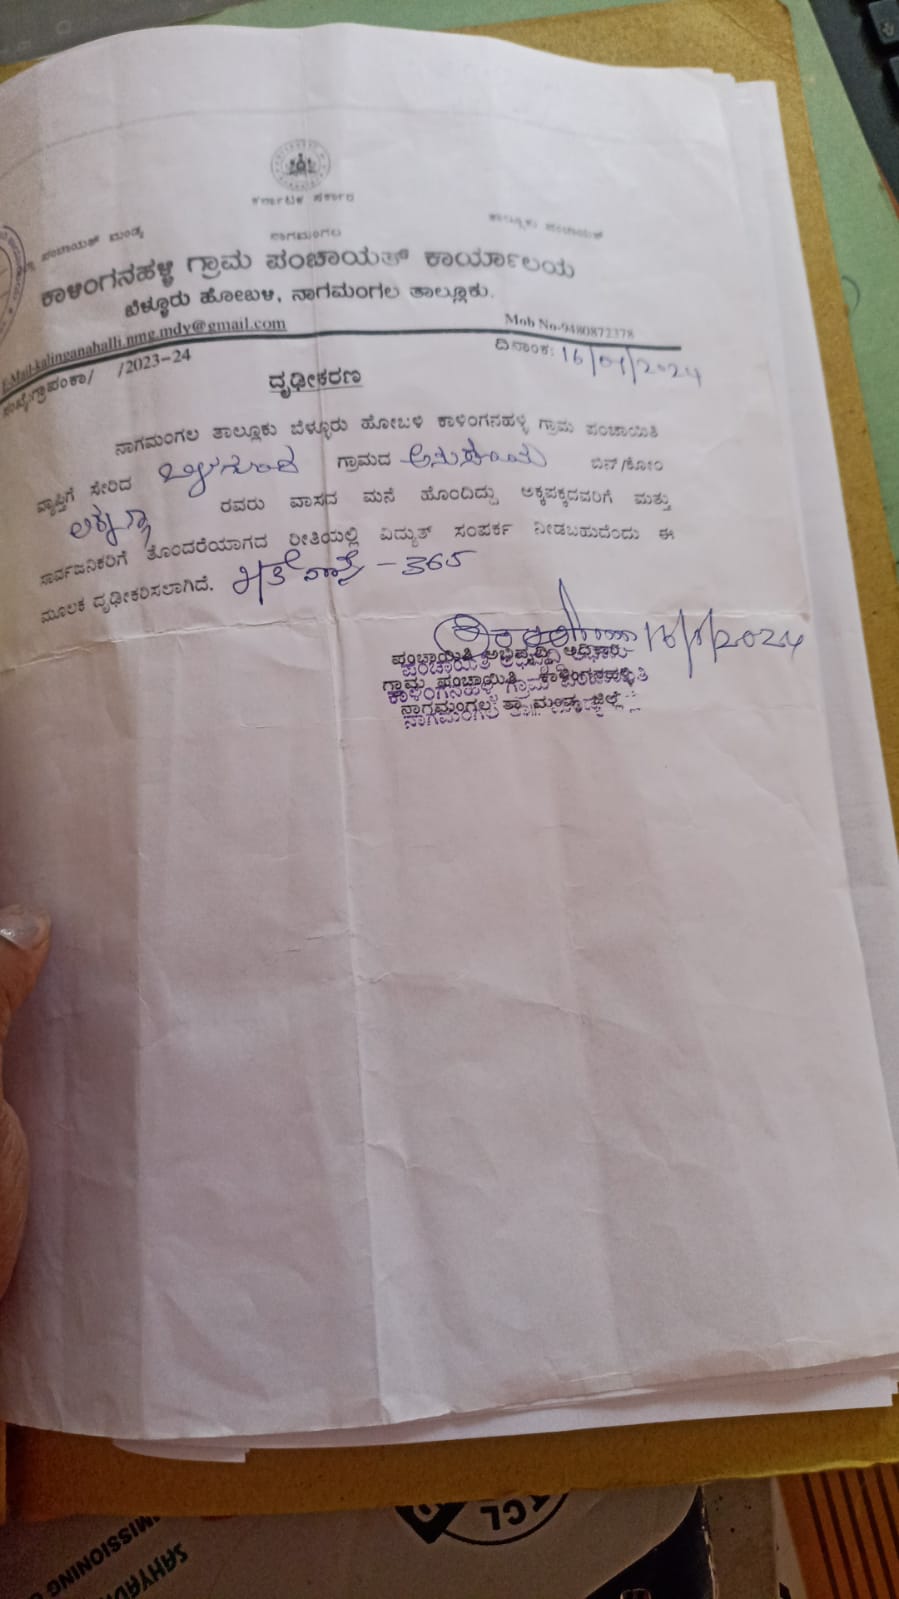 ಕರ್ನಾಟಕ ಸರ್ಕಾರ
ಪಂಚಾಯತ್ ಮಂಡ್ಯ ನಾಗಮಂಗಲ ತಾಲ್ಲೂಕು ಪಂಚಾಯತ್
ಕಾಳಿಂಗನಹಳ್ಳಿ ಗ್ರಾಮ ಪಂಚಾಯತ್ ಕಾರ್ಯಾಲಯ
ಬೆಳ್ಳೂರು ಹೋಬಳಿ, ನಾಗಮಂಗಲ ತಾಲ್ಲೂಕು.
E-Mail-kalinganahalli.nmg.mdy@gmail.com Mob No-9480872378
ಸಂಖ್ಯೆ:ಗ್ರಾಪಂಕಾ/ /2023-24 ದಿನಾಂಕ: 16/01/2024
ದೃಢೀಕರಣ
ನಾಗಮಂಗಲ ತಾಲ್ಲೂಕು ಬೆಳ್ಳೂರು ಹೋಬಳಿ ಕಾಳಿಂಗನಹಳ್ಳಿ ಗ್ರಾಮ ಪಂಚಾಯಿತಿ
ವ್ಯಾಪ್ತಿಗೆ ಸೇರಿದ ಗ್ರಾಮದ ಅನುಸೂಯ ಬಿನ್/ಕೋಂ
ರವರು ವಾಸದ ಮನೆ ಹೊಂದಿದ್ದು ಅಕ್ಕಪಕ್ಕದವರಿಗೆ ಮತ್ತು
ಸಾರ್ವಜನಿಕರಿಗೆ ತೊಂದರೆಯಾಗದ ರೀತಿಯಲ್ಲಿ ವಿದ್ಯುತ್ ಸಂಪರ್ಕ ನೀಡಬಹುದೆಂದು ಈ
ಮೂಲಕ ದೃಢೀಕರಿಸಲಾಗಿದೆ. - 365
16/1/2024
ಪಂಚಾಯಿತಿ ಅಭಿವೃದ್ಧಿ ಅಧಿಕಾರಿ
ಗ್ರಾಮ ಪಂಚಾಯಿತಿ ಕಾಳಿಂಗನಹಳ್ಳಿ
ನಾಗಮಂಗಲ ತಾ ಮಂಡ್ಯ ಜಿಲ್ಲೆ